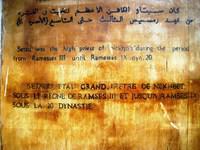 كان سيتاو الكاهن الأعظم لنخبت فى الفترة
من عهد رمسيس الثالث حتى التاسع (الأسرة
Setau was the high priest of Nekhbet during the period
from Ramesses III until Ramesses IX dyn.20.
SETAOU ETAIT GRAND PRETRE DE NEKHBET
SOUS LE REGNE DE RAMSES III ET JUSQU'A RAMSES IX
SOUS LA 20 DYNASTIE